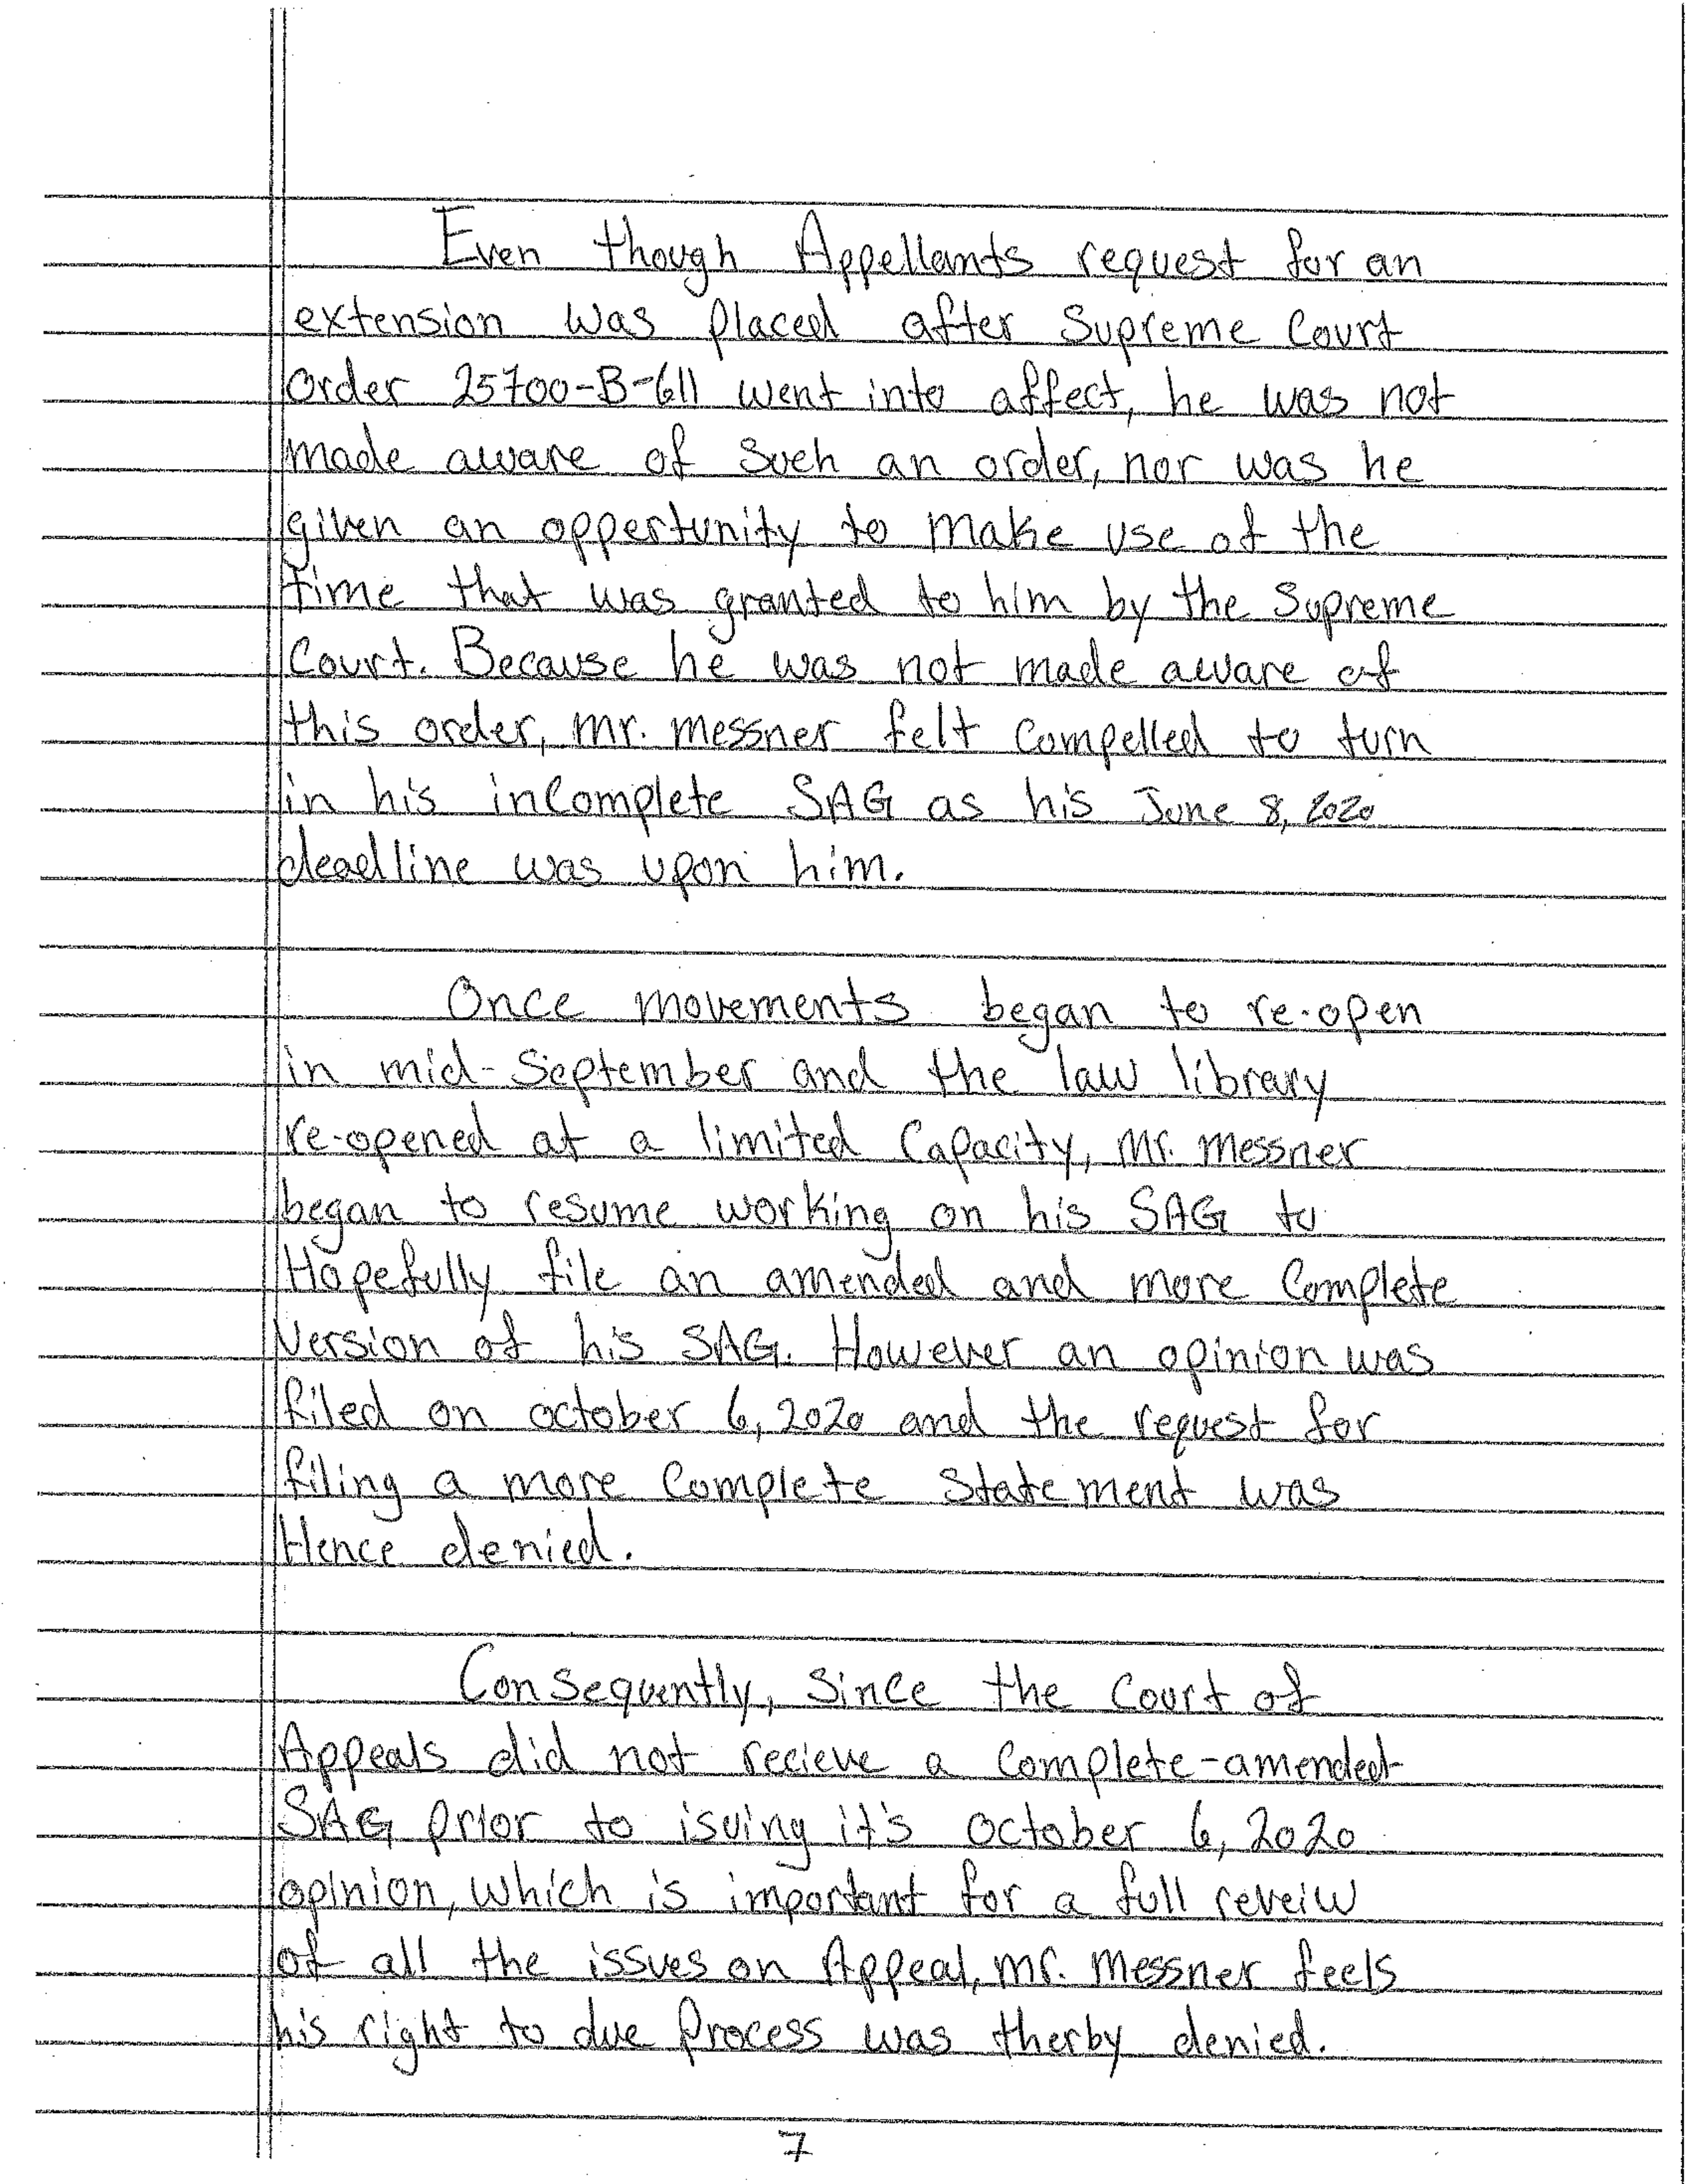 Even though Appellants request for an
extension was placed after Supreme Court
Order 25700-B-611 went into affect, he was not
made aware of such an order, nor was he
given an oppertunity to make use of the
time that was granted to him by the Supreme
Court. Because he was not made aware of
this order, mr. messner felt compelled to turn
in his incomplete SAG as his June 8, 2020
deadline was upon him.
Once movements began to re-open
in mid-September and the law library
re-opened at a limited capacity, Mr. Messner
began to resume working on his SAG to
Hopefully file an amended and more complete
version of his SAG. However an opinion was
filed on october 6, 2020 and the request for
filing a more complete statement was
Hence denied.
Consequently, since the Court of
Appeals did not recieve a complete-amended
SAG prior to isuing it's october 6, 2020
opinion, which is important for a full reveiw
of all the issues on Appeal, mr. messner feels
his right to due process was therby denied.
7